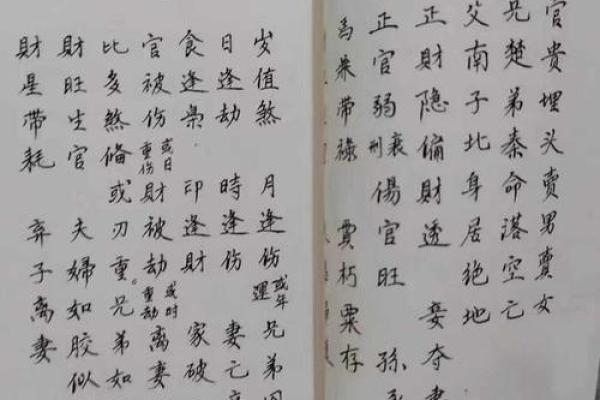 官貴埋头賣男賣女
兄楚弟秦命落空亡
父南子北身居绝地
正財隐偏財透 妾夺妻
正官弱衰刑 傷官旺 孫
馬带祿 貫朽粟存
岁值煞 月逢伤或年運 兄弟
日逢劫 時逢伤 妻亡
食逢枭 印逢財 家破
官被伤或日重伤 財被劫或时重劫 离妻
比多煞偹 或刃重。兄弟如
財旺生官 夫婦如胶似
財星带耗 弃子离妻